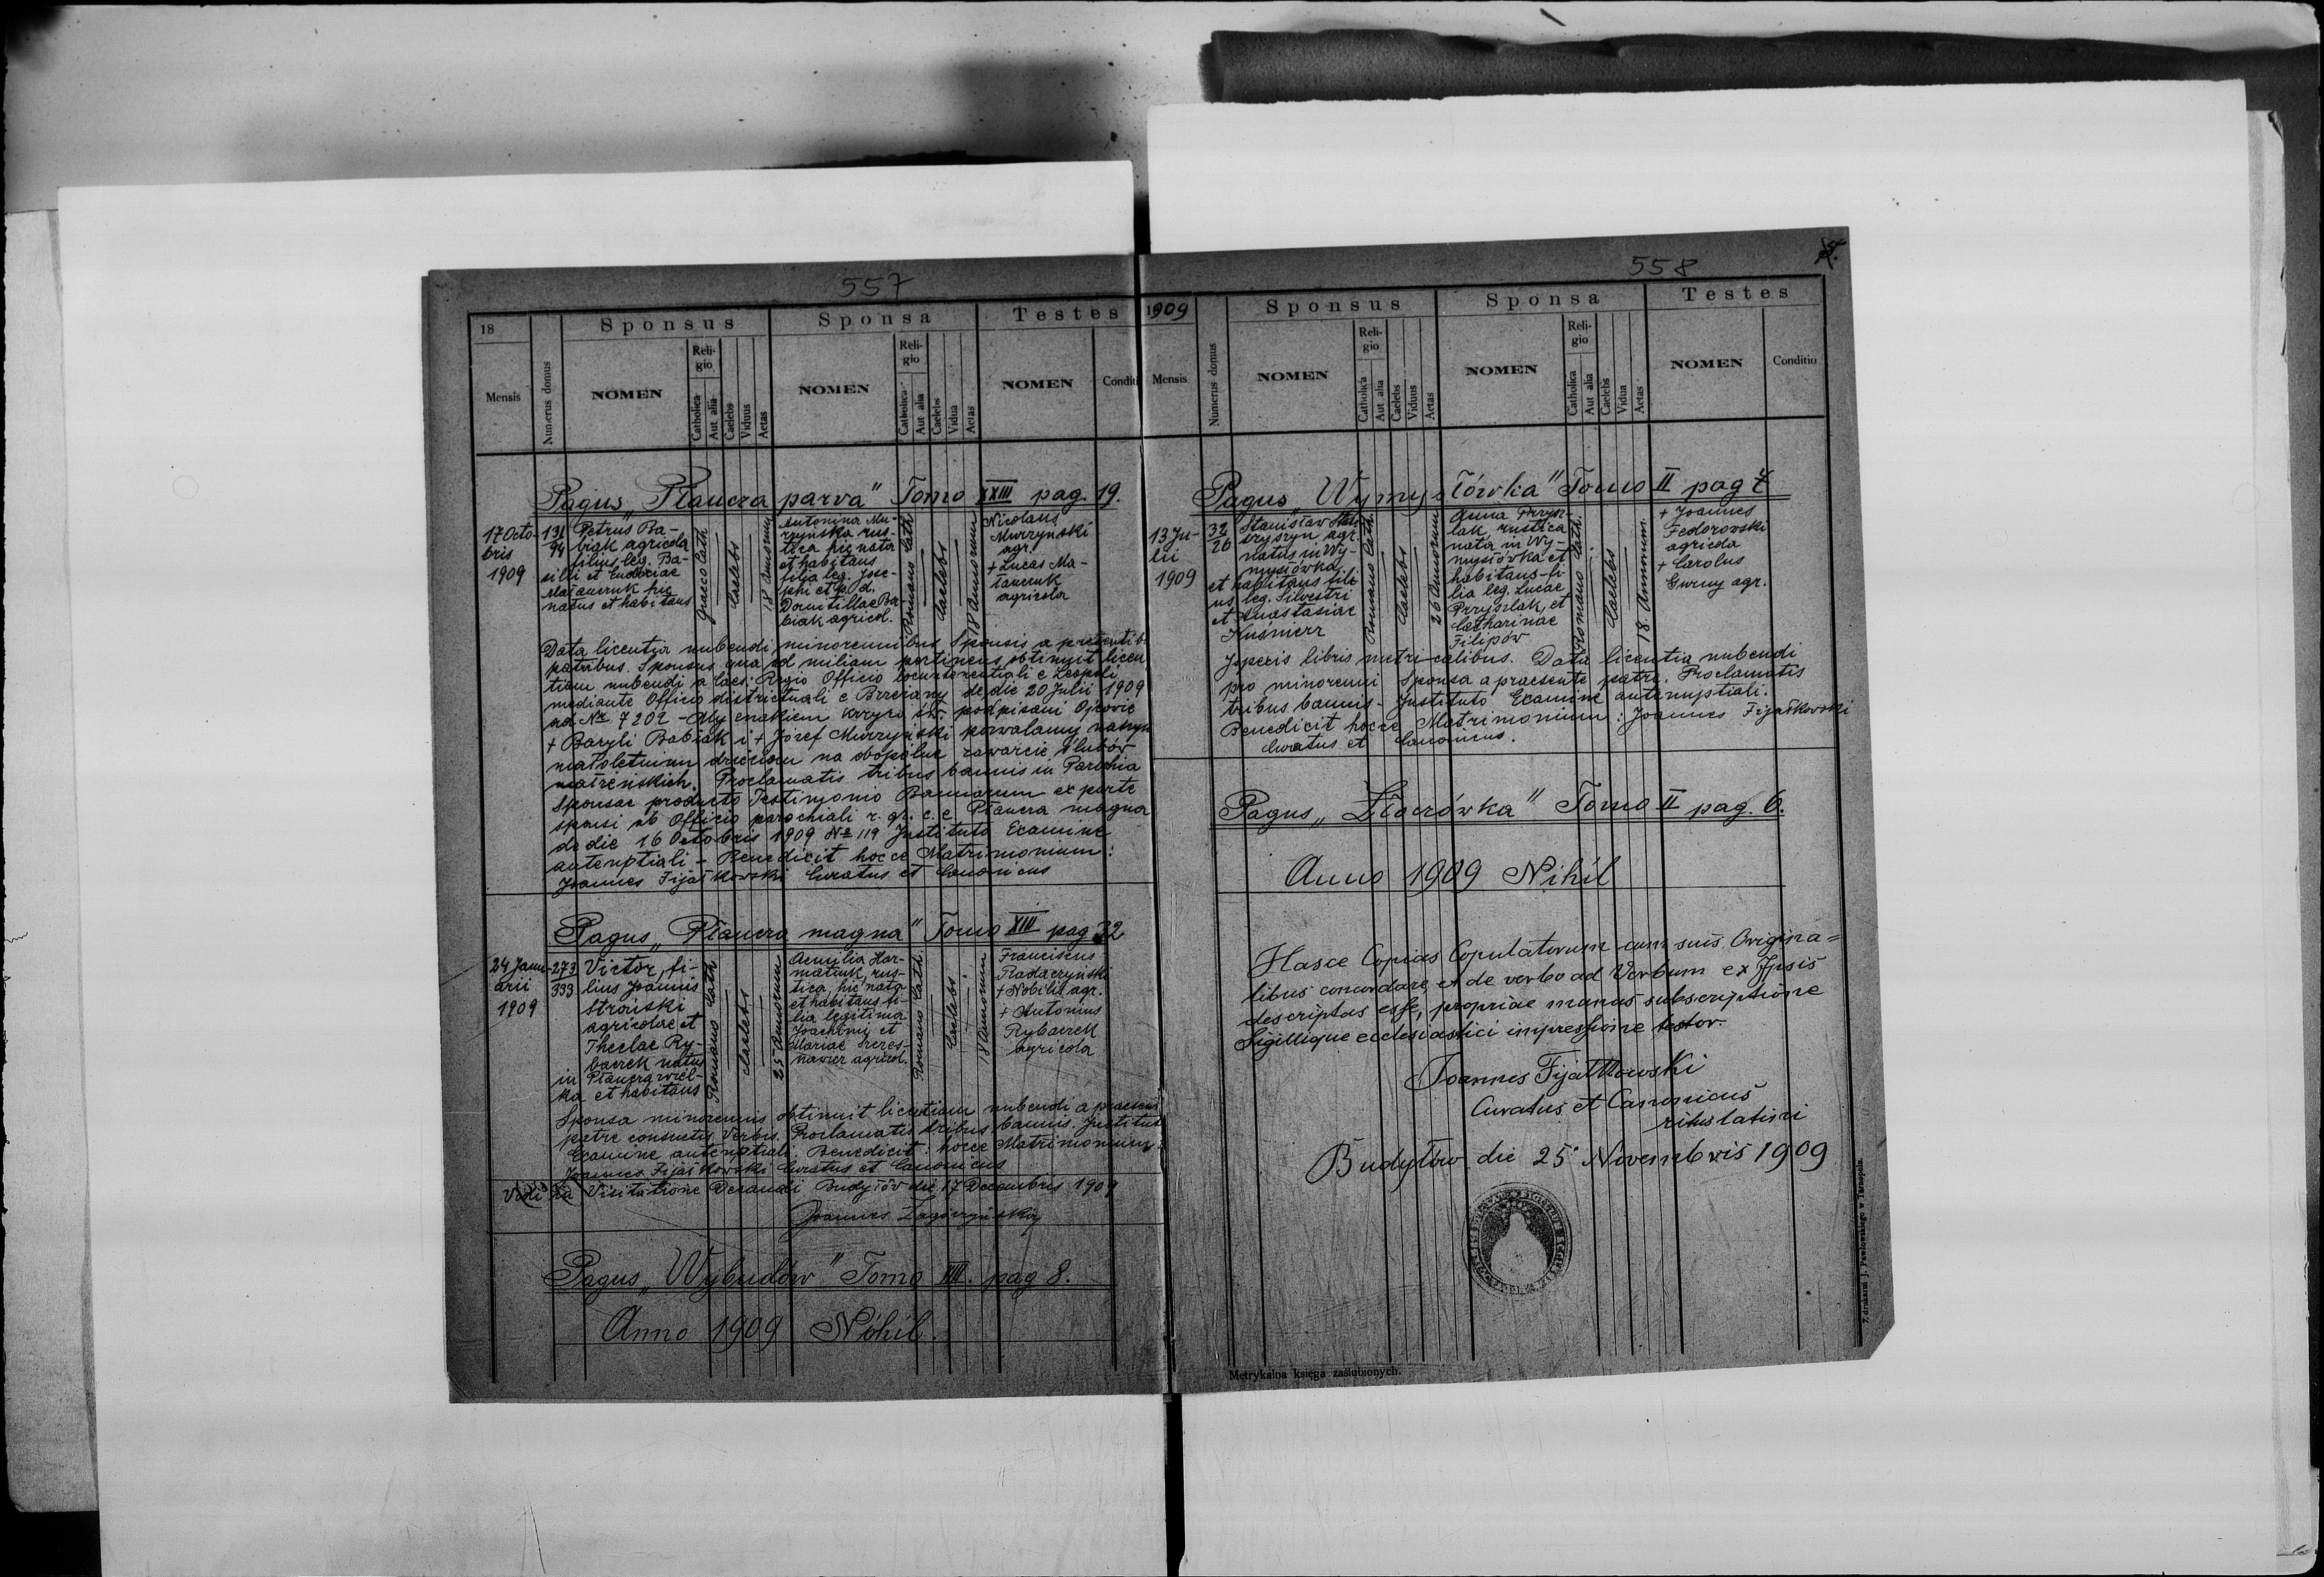 557
18
Sponsus
Sponsa
Testes
Mensis
Numerus domus
NOMEN
Religio
Catholica
Aut alia
Caelebs
Viduus
Aetas
NOMEN
Religio
Catholica
Aut alia
Caelebs
Vidua
Aetas
NOMEN
Conditi
Pagus „Płaucza parva" Tomo XXIII pag. 19.
17 Octo-
bris
1909
131
94
Petrus Ba-
biak agricola
filius leg. Ba-
silii et Eudociae
Małanczuk hic
natus et habitans
Graeco Cath
Caelebs
18 Annorum
Antonina Mu-
rzyńska rus-
tica hic nata
et habitans
filia leg. Jose-
phi et p. d.
Domitillae Ba-
biak agricol.
Romano Cath
Caelebs
18 Annorum
Nicolaus
Murzynski
agr.
+ Lucas Ma-
łanczuk
agricola
Data licentia nubendi minorennibus Sponsis a praesentib.
patribus. Sponsus qua ad miliam pertinens obtinuit licen
tiam nubendi a Caes: Regio Officio locumtenentiali e Leopoli
mediante Officio districtuali e Brzezany de die 20 Julii 1909
ad No 7202 - My znakiem krzyża św. podpisani Ojcowie
+ Bazyli Babiak i + Józef Murzyński pozwalamy naszym
małoletnim dzieciom na obopólne zawarcie ślubów
małżeńskich. Proclamatis tribus bannis in Parochia
Sponsae producto Testimonio Bannorum ex parte
sponsi ab Officio parochiali r. gr. c. e Płaucza magna
de die 16 Octobris 1909 No 119 Instituto Examine
antenptiali - Benedicit hocce Matrimonium:
Joannes Fijałkowski Curatus et Canonicus
Pagus „Płaucza magna" Tomo XIII pag 32
24 Janu-
arii
1909
273
333
Victor, fi-
lius Joannis
Stroński
agricolae et
Theclae Ry-
baczek natus
in Płaucza wiel-
ka et habitans
Romano Cath
Caelebs
25 Annorum
Aemilia Har-
matiuk, rus-
tica, hic nata
et habitans fi-
lia legitima
Joachimi et
Mariae
agricol.
Romano Cath
Caelebs
18 Annorum
Franciscus
Radaczyński
+ Nobilis agr.
+ Antonius
Rybaczek
agricola
Sponsa minorennis obtinuit licentiam nubendi a praesente
patre consuetis Verbis. Proclamatis tribus bannis. Instituto
Examine antenptiali. Benedicit hocce Matrimonium:
Joannes Fijałkowski Curatus et Canonicus
Vidi in Visitatione Decanali Budyłów die 17 Decembris 1909
Joannes
Pagus „Wybudów" Tomo III. pag 8.
Anno 1909 Nihil.
558
1909
Sponsus
Sponsa
Testes
Mensis
Numerus domus
NOMEN
Religio
Catholica
Aut alia
Caelebs
Viduus
Aetas
NOMEN
Religio
Catholica
Aut alia
Caelebs
Vidua
Aetas
NOMEN
Conditio
Pagus „Wymysłówka" Tomo II pag 7
13 Ju-
lii
1909
32
26
Stanisław
agr.
natus in Wy-
mysłówka
et habitans fili
us leg. Silvestri
et Anastasiae
Kuśnierz
Romano Cath.
Caelebs
26 Annorum
Anna Przysz-
lak, rustica
nata in Wy-
mysłówka et
habitans fi-
lia leg. Lucae
Przyszlak, et
Catharinae
Filipów
Romano Cath.
Caelebs
18. Annorum.
+ Joannes
Fedorowski
agricola
+ Carolus
agr.
Inspecis libris metricalibus. Data licentia nubendi
pro minorenni Sponsa a praesente patre. Proclamatis
tribus bannis - Instituto Examine antenuptiali.
Benedicit hocce Matrimonium: Joannes Fijałkowski
Curatus et Canonicus.
Pagus „Złoczówka" Tomo II pag. 6.
Anno 1909 Nihil
Hasce Copias Copulatorum cum suis Origina=
libus concordare, et de verbo ad Verbum ex Ipsis
descriptas esse, propriae manus subscriptione
Sigillique ecclesiastici impressione testor.
Joannes Fijałkowski
Curatus et Canonicus
ritus latini
Budyłów die 25 Novembris 1909
Metrykalna księga zaślubionych.
Z drukarni J. Pawłowskiego w Tarnopolu.